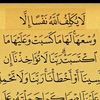 لَا يُكَلِّفُ اللَّهُ نَفْسًا إِلَّا
وُسْعَهَا لَهَا مَا كَسَبَتْ وَعَلَيْهَا مَا
اكْتَسَبَتْ رَبَّنَا لَا تُؤَاخِذْنَا إِنْ
نَسِينَا أَوْ أَخْطَأْنَا رَبَّنَا وَلَا تَحْمِلْ